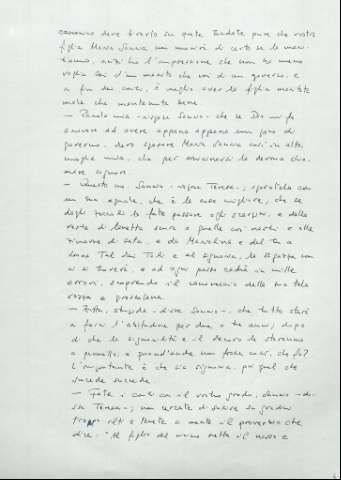 deve su Badate pure che vostra
figlia Maria Sancia non morirà di certo se la mari-
tiamo, anzi ho l'impressione che non ha meno
voglia lei d'un marito che voi di un governo, e
a fin dei conti, è meglio aver la figlia maritata
male che mantenuta bene.
— Parola mia - rispose Sancio - che se Dio mi fa
arrivare ad avere appena appena un po' di
governo, devo sposare Maria Sancia così in alto,
moglie mia, che per avvicinarsi la devono chia-
mare signora.
— Questo no, Sancio - rispose Teresa -; sposatela con
un suo eguale, che è la cosa migliore, che se
dagli zoccoli la fate passare agli scarpini, e dalla
veste di a quelle con cerchi e alle
zimarre di seta, e da Marichina e del tu a
donna Tal dei Tali e al signoria, la ragazza non
ci si troverà, e ad ogni passo cadrà in mille
errori, scoprendo il canovaccio della sua tela
rozza e grossolana.
— Zitta, stupida - disse Sancio -, che tutto starà
a farci l'abitudine per due o tre anni; dopo
di che la signorilità e il decoro le staranno
a pennello; e quand'anche non fosse così, che fa?
L'importante è che sia signora, poi quel che
succede succede.
— Fate i conti con il vostro grado, Sancio - dis-
se Teresa -; non cercate di salire su gradini
troppo alti e tenete a mente il proverbio che
dice: "Al figlio del vicino netta il naso e